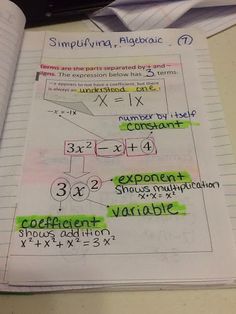 Simplifying Algebraic 7
Terms are the parts separated by + and -
signs. The expression below has 3 terms.
x appears to not have a coefficient, but there
is always an understood one.
x = 1x
-x = -1x
number by itself
constant
3x² - x + 4
3x²
exponent
shows multiplication
x•x = x²
variable
coefficient
shows addition
x² + x² + x² = 3x²